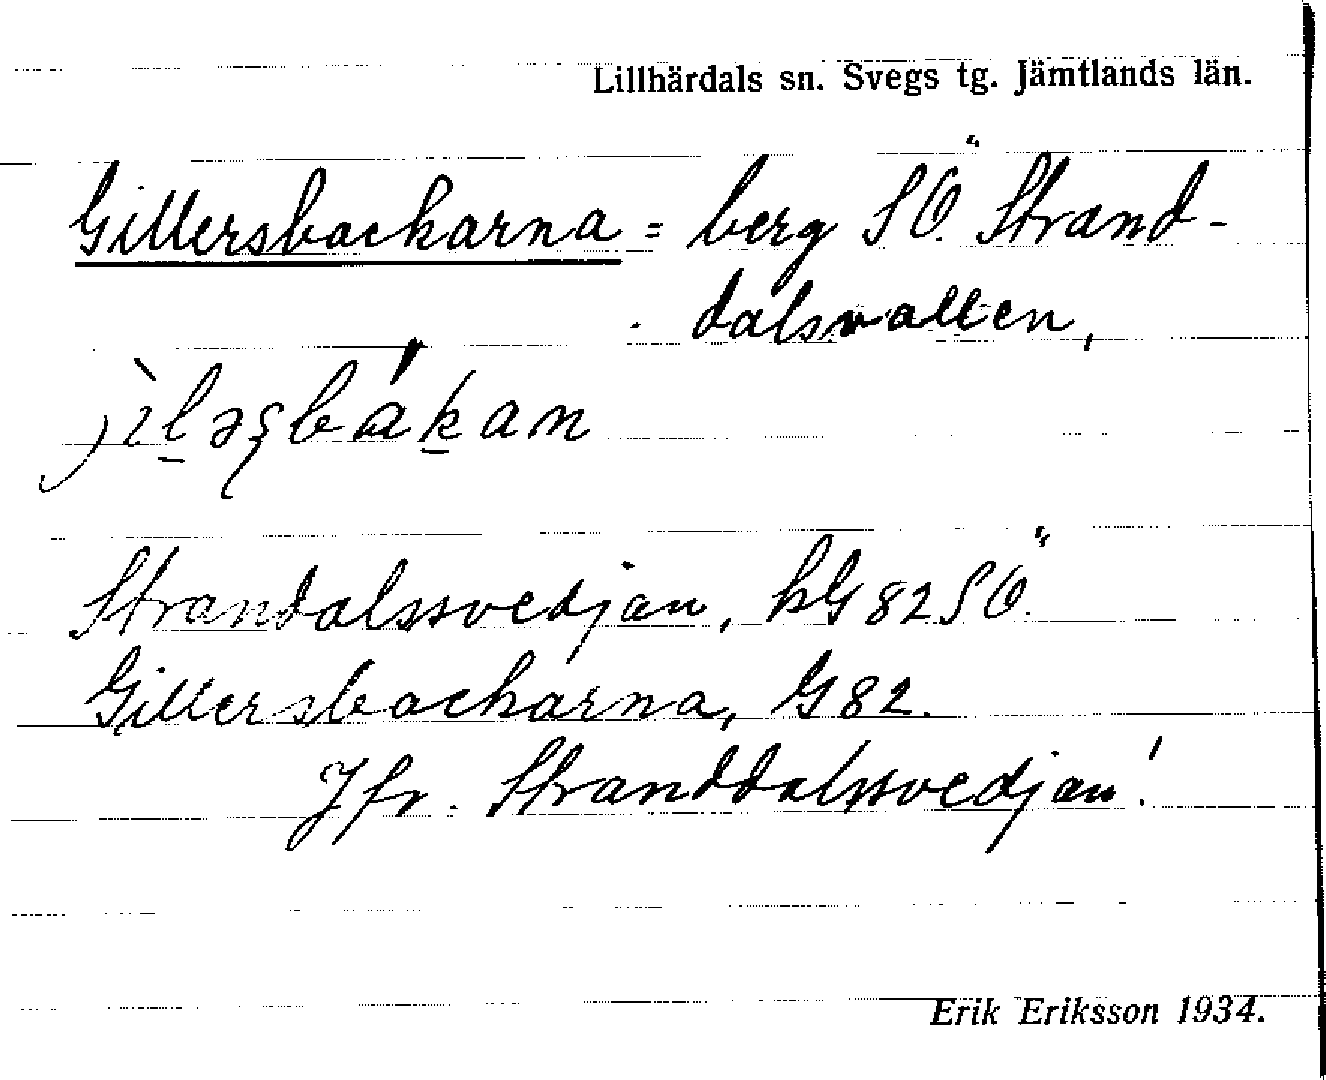 Lillhärdals sn. Svegs tg. Jämtlands län.
Gillersbackarna = berg SÖ. Strand-
dalsvallen,
Strandalssvedjan, hG82SÖ.
Gillersbackarna, G82.
Jfr. Stranddalssvedjan!
Erik Eriksson 1934.